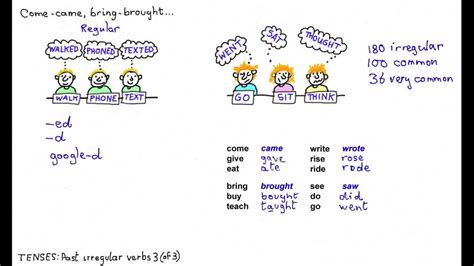 Come-came, bring-brought...
Regular
WALKED PHONED TEXTED
WALK PHONE TEXT
-ed
-d
google-d
WENT SAT THOUGHT
GO SIT THINK
180 irregular
100 common
36 very common
come came write wrote
give gave rise rose
eat ate ride rode
bring brought see saw
buy bought do did
teach taught go went
TENSES: Past irregular verbs 3 (of 3)